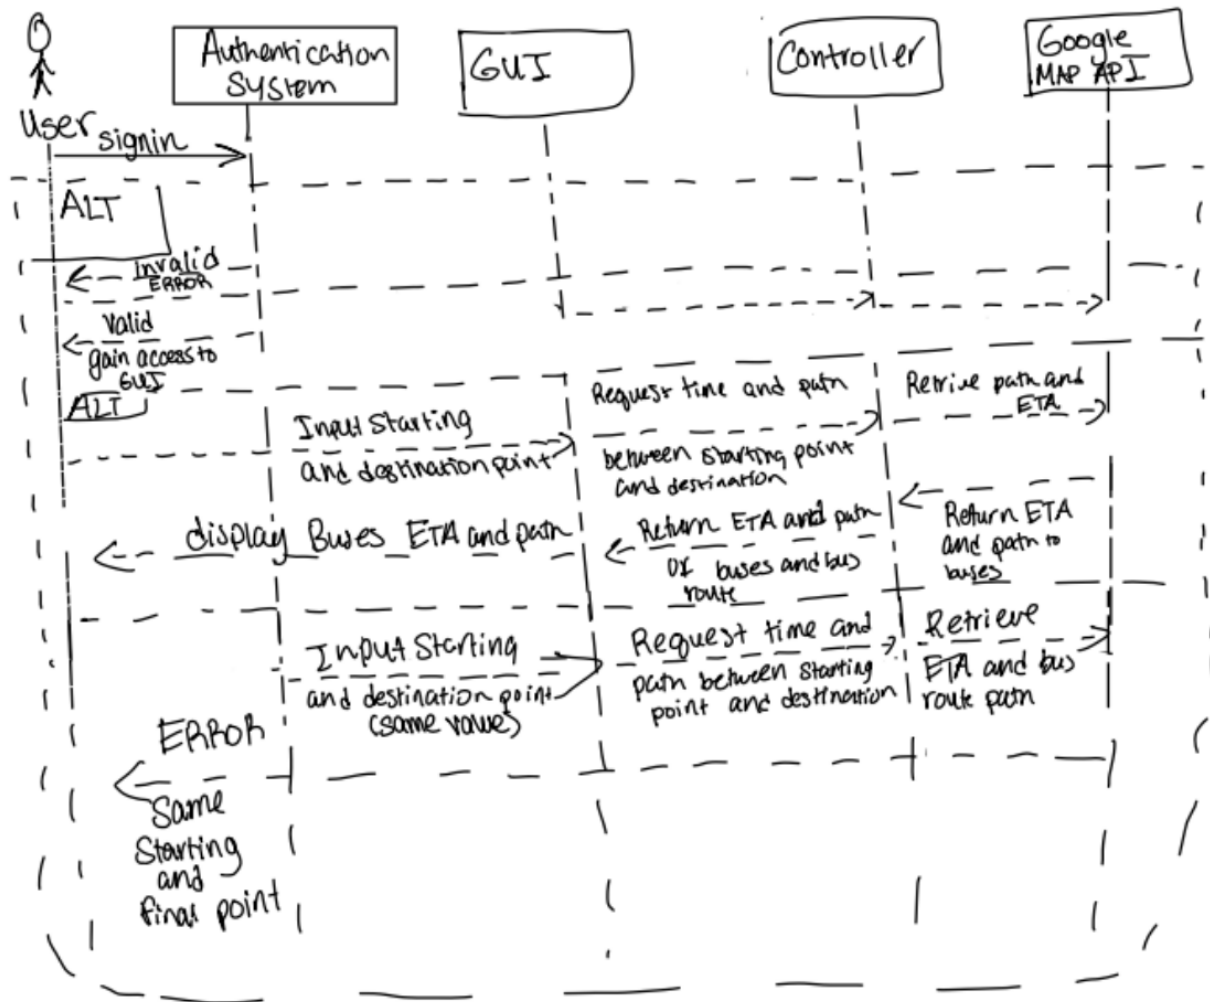 Authentication
System
GUI
Controller
Google
MAP API
User
signin
ALT
invalid
ERROR
Valid
gain access to
GUI
ALT
Input Starting
and destination point
Request time and path
between starting point
and destination
Retrive path and
ETA
Return ETA
and path to
buses
Return ETA and path
of buses and bus
route
display Buses ETA and path
Input Starting
and destination point
(same value)
Request time and
path between starting
point and destination
Retrieve
ETA and bus
route path
ERROR
Same
Starting
and
final point